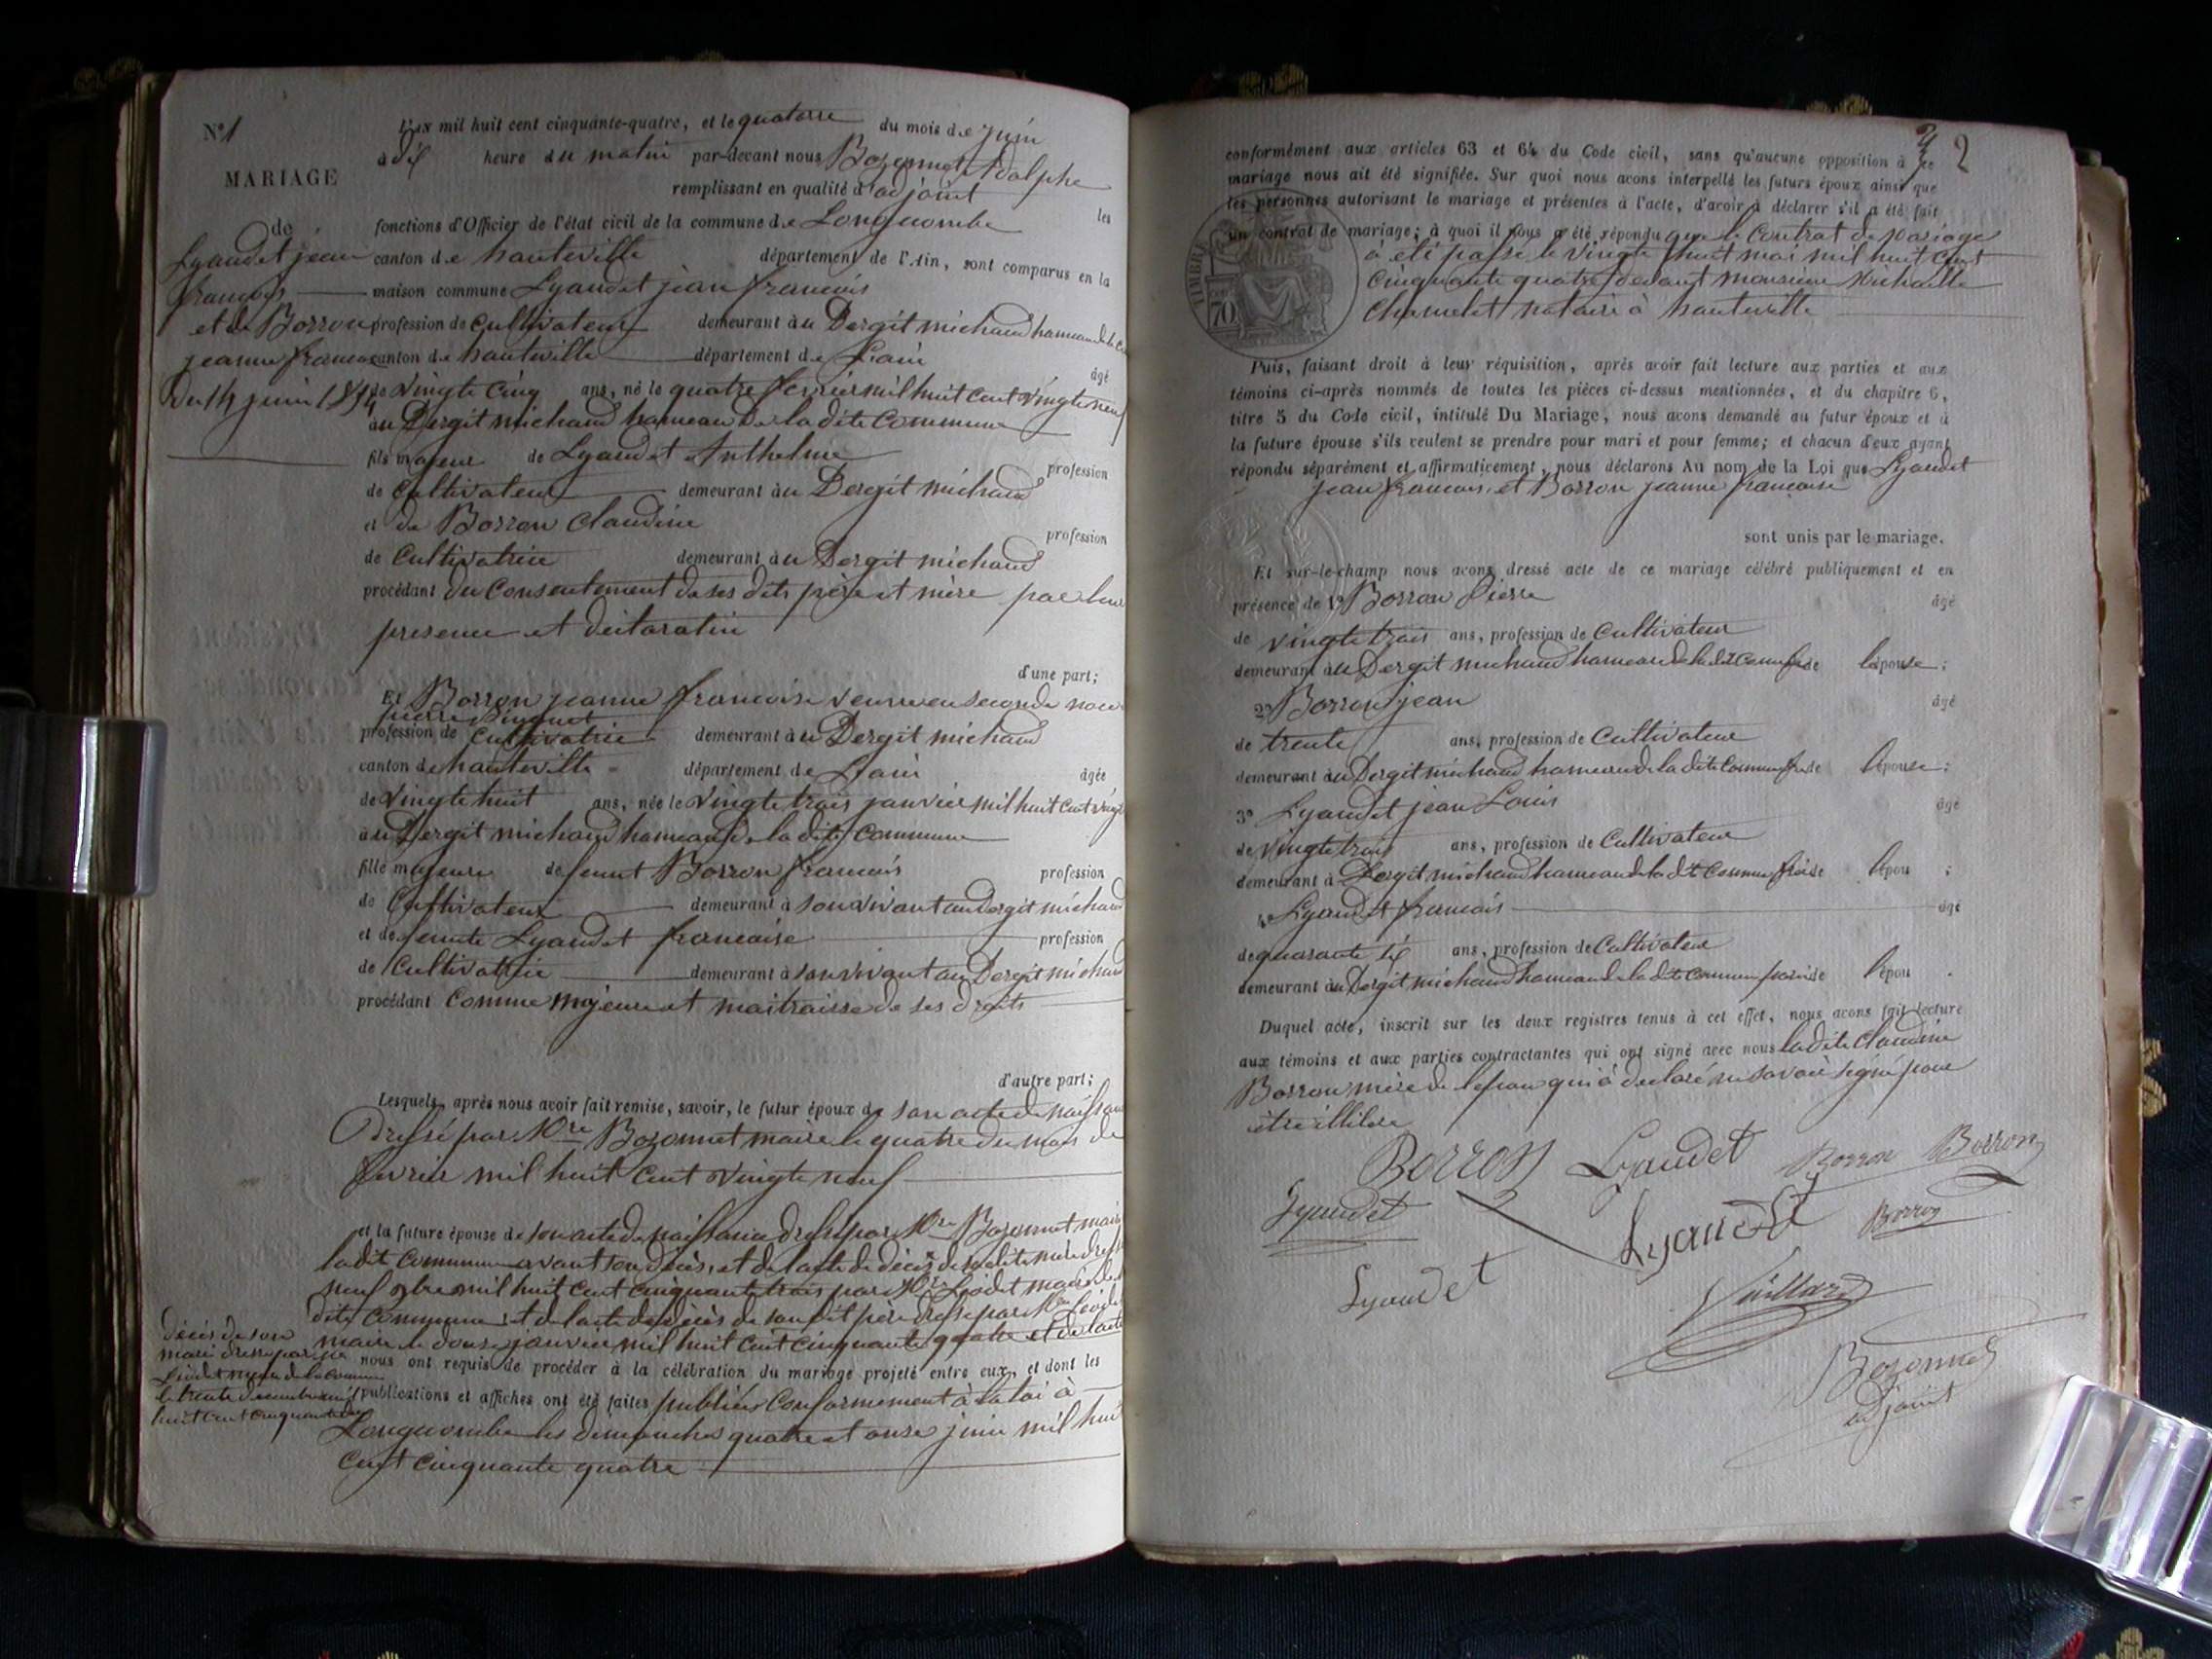 N° 1
MARIAGE
de
Lyaudet jean
françois
et de Borron
jeanne francoise
du 14 juin 1854
L'an mil huit cent cinquante-quatre, et le quatorse du mois de juin
à dix heure du matin par-devant nous Bozonnet Adolphe
remplissant en qualité d'adjoint les
fonctions d'Officier de l'état civil de la commune de Longecombe
canton de hauteville département de l'Ain, sont comparus en la
maison commune Lyaudet jean francois
profession de Cultivateur demeurant au Dergit michaud hameau de la
canton de hauteville département de L'ain âgé
de vingte cinq ans, né le quatre fevrier mil huit cent vingte neuf
au Dergit michaud hameau de la dite Commune
fils majeur de Lyaudet Anthelme profession
de Cultivateur demeurant au Dergit michaud
et de Borron Claudine profession
de Cultivatrice demeurant au Dergit michaud
procédant du Consentement de ses dits père et mère par leur
presence et déclaration
d'une part;
Et Borron jeanne francoise veuve en seconde noce
pierre
profession de Cultivatrice demeurant au Dergit michaud
canton de hauteville département de L'ain âgée
de vingte huit ans, née le vingte trois janvier mil huit cent vingt
au Dergit michaud hameau de la dite Commune
fille majeure de feu Borron francois profession
de Cultivateur demeurant à son vivant au Dergit michaud
et de feinte Lyaudet francoise profession
de Cultivatrice demeurant à son vivant au Dergit michaud
procédant Comme majeure et maitraisse de ses droits
d'autre part;
Lesquels, après nous avoir fait remise, savoir, le futur époux de son acte de naissance
Dressé par Mre Bozonnet maire le quatre du mois de
fevrier mil huit Cent vingte neuf
et la future épouse de son acte de naissance dressé par Mre Bozonnet maire
la dit Commune avant son décès, et de l'acte de décès de sa dite mère dressé
neuf xbre mil huit cent cinquante trois par Mre Liodet maire de la
dite Commune et de l'acte de décès de son dit père dressé par Mre Liodet
maire le douse janvier mil huit cent cinquante quatre et de l'acte
décès de son
mari dressé par
Liodet maire de la Commune
le trente decembre mil
huit cent cinquante
nous ont requis de procéder à la célébration du mariage projeté entre eux, et dont les
publications et affiches ont été faites publiées Conformement à la loi à
Longecombe les dimanches quatre et onse juin mil huit
cent cinquante quatre
2
conformément aux articles 63 et 64 du Code civil, sans qu'aucune opposition à ce
mariage nous ait été signifiée. Sur quoi nous avons interpellé les futurs époux ainsi que
les personnes autorisant le mariage et présentes à l'acte, d'avoir à déclarer s'il a été fait
un contrat de mariage; à quoi il nous a été répondu que le Contrat de mariage
à été passé le vingte huit mai mil huit cent
cinquante quatre devant monsieur Michaille
Chamelet notaire à hauteville
TIMBRE
70
Puis, faisant droit à leur réquisition, après avoir fait lecture aux parties et aux
témoins ci-après nommés de toutes les pièces ci-dessus mentionnées, et du chapitre 6,
titre 5 du Code civil, intitulé Du Mariage, nous avons demandé au futur époux et à
la future épouse s'ils veulent se prendre pour mari et pour femme; et chacun d'eux ayant
répondu séparément et affirmativement, nous déclarons Au nom de la Loi que Lyaudet
jean francois, et Borron jeanne francoise
sont unis par le mariage.
Et sur-le-champ nous avons dressé acte de ce mariage célébré publiquement et en
présence de 1° Borron Pierre âgé
de vingte trois ans, profession de Cultivateur
demeurant au Dergit michaud hameau de la dit Commune de l'épouse;
2° Borron jean âgé
de trente ans, profession de Cultivateur
demeurant au Dergit michaud hameau de la dite Commune de l'épouse;
3° Lyaudet jean Louis âgé
de vingte trois ans, profession de Cultivateur
demeurant à Dergit michaud hameau de la dit Commune de l'épou ;
4° Lyaudet francois âgé
de quarante six ans, profession de Cultivateur
demeurant au Dergit michaud hameau de la dit Commune de l'épou .
Duquel acte, inscrit sur les deux registres tenus à cet effet, nous avons fait lecture
aux témoins et aux parties contractantes qui ont signé avec nous la dite Claudine
Borron mère de l'epoux qui à declaré ne savoir signé pour
être illitere
Borron Lyaudet Borron Borron
Lyaudet Lyaudet Borron
Lyaudet
Bozonnet
adjoint